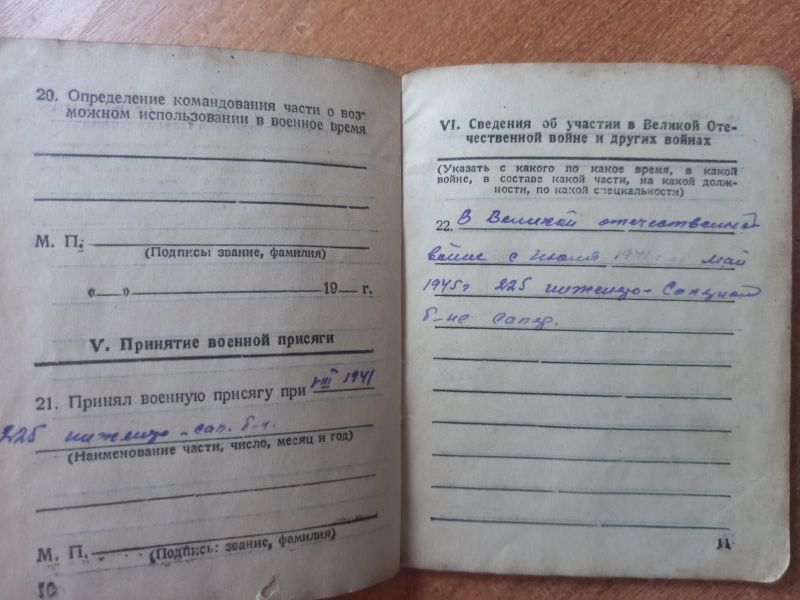 20. Определение командования части о воз-
можном использовании в военное время
М. П.
(Подпись: звание, фамилия)
«__» 19__ г.
V. Принятие военной присяги
21. Принял военную присягу при VIII 1941
225 инженерно-сап. б-н.
(Наименование части, число, месяц и год)
М. П.
(Подпись: звание, фамилия)
10
VI. Сведения об участии в Великой Оте-
чественной войне и других войнах
(Указать с какого по какое время, в какой
войне, в составе какой части, на какой долж-
ности, по какой специальности)
22. В Великой отечественной
войне с июля 1941 г. май
1945г 225 инженерно-Саперном
б-не сапер.
11